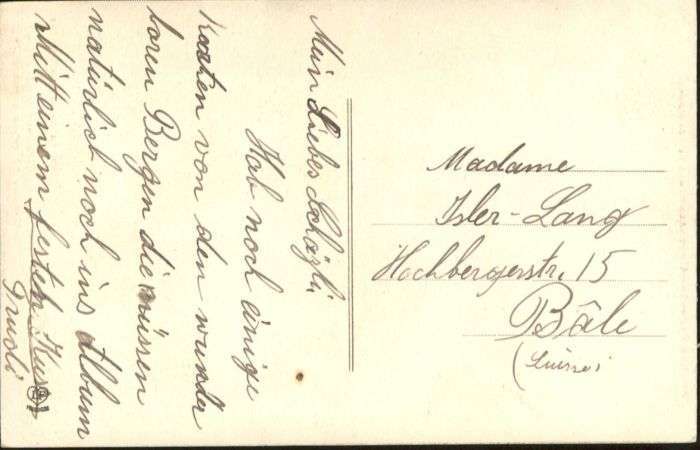 Mein Liebes Schägli,
Hab noch einige
Karten von den wunder
baren Bergen die müssen
natürlich noch ins Album
Mitt einem festen Kuss
Trudi
Madame
Isler-Lang
Hochbergerstr. 15
Bâle
(Suisse)